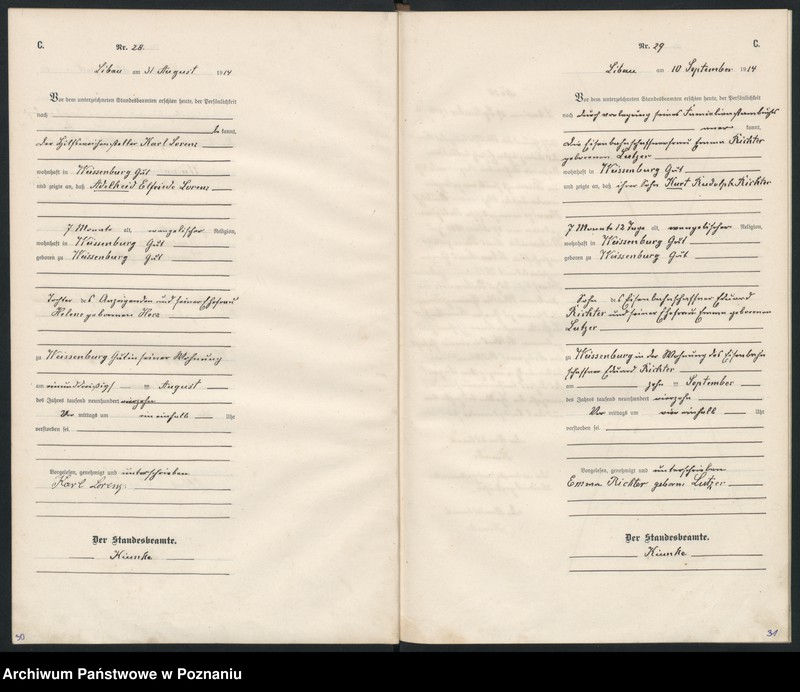 C.
Nr. 28.
Libau am 31 August 1914
Vor dem unterzeichneten Standesbeamten erschien heute, der Persönlichkeit
nach
be kannt,
der Hilfsweichensteller Karl Lorenz
wohnhaft in Weissenburg Gut
und zeigte an, daß Adelheid Elfriede Lorenz
7 Monate alt, evangelischer Religion,
wohnhaft in Weissenburg Gut
geboren zu Weissenburg Gut
Tochter des Anzeigenden und seiner Ehefrau
Helene geborenen
zu Weissenburg Gut in seiner Wohnung
am einunddreißigsten August
des Jahres tausend neunhundert vierzehn
Vor mittags um ein einhalb Uhr
verstorben sei
Vorgelesen, genehmigt und unterschrieben
Karl Lorenz
Der Standesbeamte.
Kiunke
30
Nr. 29
C.
Libau am 10 September 1914
Vor dem unterzeichneten Standesbeamten erschien heute, der Persönlichkeit
nach durch Vorlegung seines Familienstammbuchs
aner kannt,
die Eisenbahnschaffnerfrau Emma Richter
geborenen Lutzer
wohnhaft in Weissenburg Gut
und zeigte an, daß ihr Sohn Kurt Rudolph Richter
7 Monate 12 Tage alt, evangelischer Religion,
wohnhaft in Weissenburg Gut
geboren zu Weissenburg Gut
Sohn des Eisenbahnschaffner Eduard
Richter und seiner Ehefrau Emma geborenen
Lutzer
zu Weissenburg in der Wohnung des Eisenbahn
schaffner Eduard Richter
am zehn September
des Jahres tausend neunhundert vierzehn
Vor mittags um vier einhalb Uhr
verstorben sei
Vorgelesen, genehmigt und unterschrieben
Emma Richter geboren Lutzer
Der Standesbeamte.
Kiunke
31
Archiwum Państwowe w Poznaniu